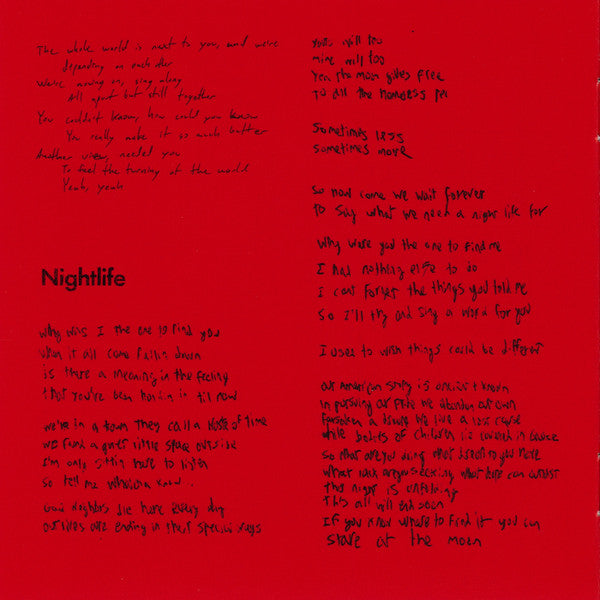 The whole world is next to you, and we're
depending on each other
We're moving on, sing along
All apart but still together
You couldn't know, how could you know
You really make it so much better
Another view, needed you
To feel the turning of the world
Yeah, yeah
Nightlife
Why was I the one to find you
when it all came fallin down
is there a meaning in the feeling
that you've been holding in til now
we're in a town they call a waste of time
we found a quiet little space outside
I'm only sittin here to listen
so tell me whatcha know.
neighbors die here every day
our lives are ending in their special ways
yours will too
mine will too
Yea the moon gives free
To all the homeless
Sometimes less
sometimes more
so now come we wait forever
to say what we need a night life for
why were you the one to find me
I had nothing else to do
I cant forget the things you told me
so I'll try and sing a word for you
I used to wish things could be different
our american story is ancient known
in pursuing our fate we abandon our own
forsaken a issue we live a lost cause
while bodies of children lie covered in
so what are you doing what brought you here
what are you seeking what here can
this night is unfolding
This all will end soon
If you know where to find it you can
stare at the moon